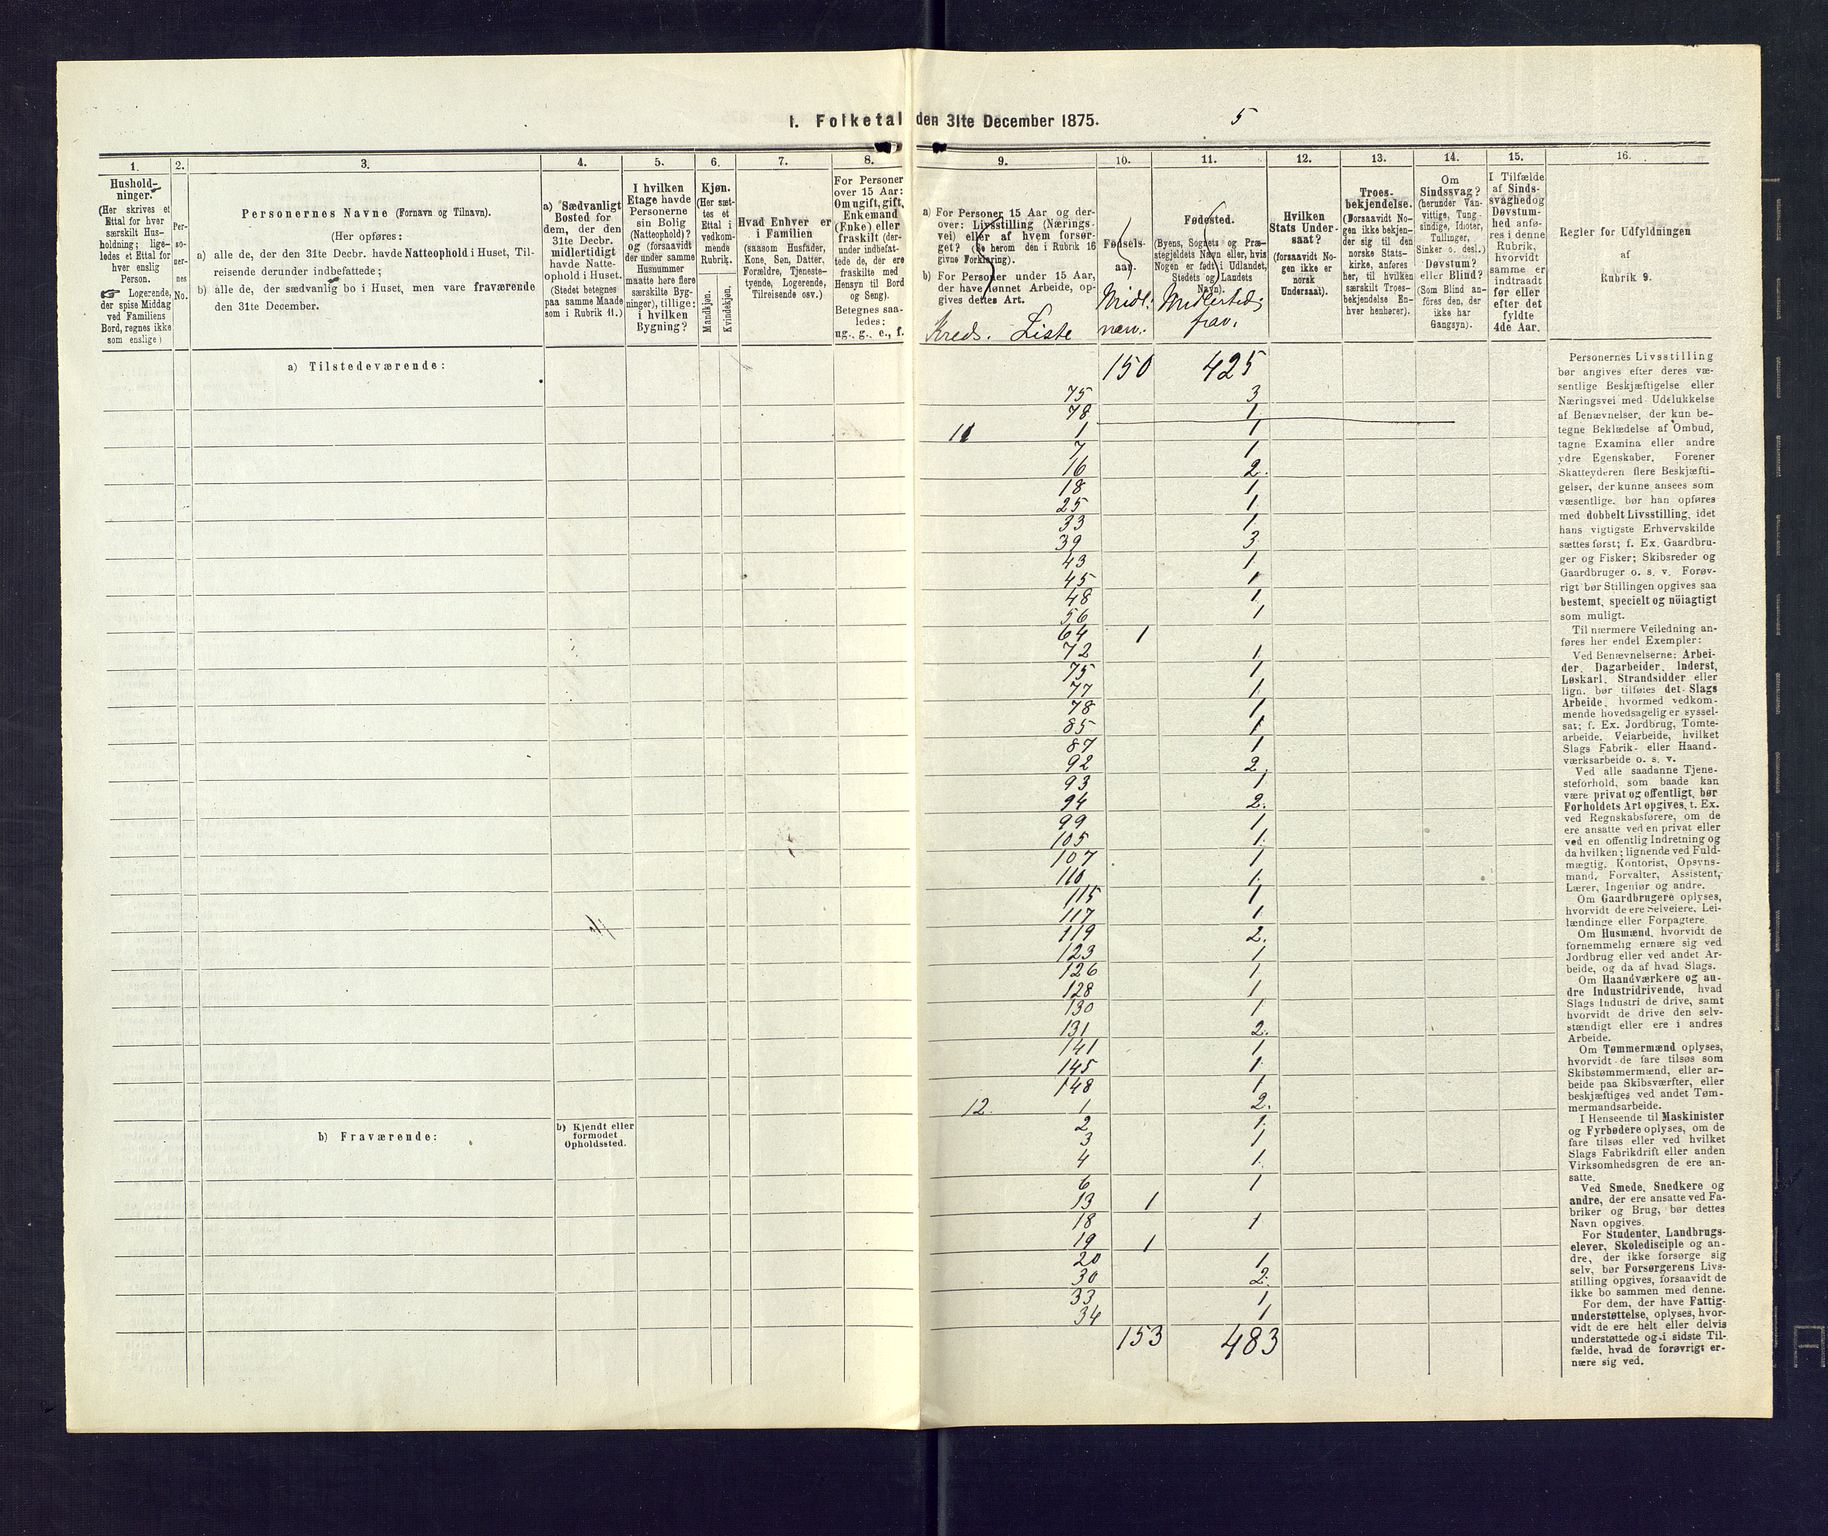 I. Folketal den 31te December 1875.
5
1.
Hushold-
ninger.
(Her skrives et
Ettal for hver
særskilt Hus-
holdning; lige-
ledes et Ettal for
hver enslig
Person.
☞ Logerende,
der spise Middag
ved Familiens
Bord, regnes ikke
som enslige)
2.
Per-
so-
ner-
nes
No.
3.
Personernes Navne (Fornavn og Tilnavn).
(Her opføres:
a) alle de, der den 31te Decbr. havde Natteophold i Huset, Til-
reisende derunder indbefattede;
b) alle de, der sædvanlig bo i Huset, men vare fraværende
den 31te December.
4.
a) Sædvanligt
Bosted for
dem, der den
31te Decbr.
midlertidigt
havde Natte-
ophold i Huset.
(Stedet betegnes
paa samme Maade
som i Rubrik 11.)
5.
I hvilken
Etage havde
Personerne
sin Bolig
(Natteophold)?
og (forsaavidt
der under samme
Husnummer
maatte høre flere
særskilte Byg-
ninger), tillige:
i hvilken
Bygning?
6.
Kjøn.
(Her sæt-
tes et
Ettal i
vedkom-
mende
Rubrik.
Mandkjøn.
Kvindekjøn.
7.
Hvad Enhver er
i Familien
(saasom Husfader,
Kone, Søn, Datter,
Forældre, Tjeneste-
tyende, Logerende,
Tilreisende osv.)
8.
For Personer
over 15 Aar:
Om ugift, gift,
Enkemand
(Enke) eller
fraskilt (der-
under indbefat-
tede de, der ere
fraskilte med
Hensyn til Bord
og Seng).
Betegnes saa-
ledes:
ug., g., e., f.
9.
a) For Personer 15 Aar og der-
over: Livsstilling (Nærings-
vei) eller af hvem forsør-
get? (Se herom den i Rubrik 16
givne Forklaring).
b) For Personer under 15 Aar,
der have lønnet Arbeide, op-
gives dettes Art.
Kreds. Liste
10.
Fødsels-
aar.
Midl.
nærv.
11.
Fødested.
(Byens, Sognets og Præ-
stegjeldets Navn eller, hvis
Nogen er født i Udlandet,
Stedets og Landets
Navn).
Midlertid.
frav.
12.
Hvilken
Stats Under-
saat?
(forsaavidt No-
gen ikke er
norsk
Undersaat).
13.
Troes-
bekjendelse.
(Forsaavidt No-
gen ikke bekjen-
der sig til den
norske Stats-
kirke, anføres
her, til hvilken
særskilt Troes-
bekjendelse En-
hver henhører).
14.
Om
Sindssvag?
(herunder Van-
vittige, Tung-
sindige, Idioter,
Tullinger,
Sinker o. desl.)
Døvstum?
eller Blind?
(Som Blind an-
føres den, der
ikke har
Gangsyn).
15.
I Tilfælde
af Sinds-
svaghed og
Døvstum-
hed anfø-
res i denne
Rubrik,
hvorvidt
samme er
indtraadt
før eller
efter det
fyldte
4de Aar.
16.
Regler for Udfyldningen
af
Rubrik 9.
a) Tilstedeværende:
150 425
75 3
78 1
11 1 1
7 1
16 2.
18 1
25 1.
33 1
39 3
43 1.
45 1
48 1
56 1
64 1
72 1
75 1
77 1
78 1
85 1
87 1
92 2.
93 1
94 2.
99 1
105 1.
107 1
110 1.
115 1
117 1
119 2.
123 1
126 1
128 1
130 1
131 2.
141 1
145 1.
148 1
12. 1 2.
2 1.
3 1
4 1.
6 1
13 1
18 1
19 1
20 1.
30 2.
33 1
34 1
153 483
b) Fraværende:
b) Kjendt eller
formodet
Opholdssted.
Personernes Livsstilling
bør angives efter deres væ-
sentlige Beskjæftigelse eller
Næringsvei med Udelukkelse
af Benævnelser, der kun be-
tegne Beklædelse af Ombud,
tagne Examina eller andre
ydre Egenskaber. Forener
Skatteyderen flere Beskjæfti-
gelser, der kunne ansees som
væsentlige, bør han opføres
med dobbelt Livsstilling, idet
hans vigtigste Erhvervskilde
sættes først; f. Ex. Gaardbru-
ger og Fisker; Skibsreder og
Gaardbruger o. s. v. Forøv-
rigt bør Stillingen opgives saa
bestemt, specielt og nöiagtigt
som muligt.
Til nærmere Veiledning an-
føres her endel Exempler:
Ved Benævnelserne: Arbei-
der, Dagarbeider, Inderst,
Løskarl, Strandsidder eller
lign. bør tilføies det Slags
Arbeide, hvormed vedkom-
mende hovedsagelig er syssel-
sat; f. Ex. Jordbrug, Tomte-
arbeide, Veiarbeide, hvilket
Slags Fabrik- eller Haand-
værksarbeide o. s. v.
Ved alle saadanne Tjene-
steforhold, som baade kan
være privat og offentligt, bør
Forholdets Art opgives, t. Ex.
ved Regnskabsførere, om de
ere ansatte ved en privat eller
ved en offentlig Indretning og
da hvilken; lignende ved Fuld-
mægtig, Kontorist, Opsyns-
mand, Forvalter, Assistent,
Lærer, Ingeniør og andre.
Om Gaardbrugere oplyses,
hvorvidt de ere Selveiere, Lei-
lændinge eller Forpagtere.
Om Husmænd, hvorvidt de
fornemmelig ernære sig ved
Jordbrug eller ved andet Ar-
beide, og da af hvad Slags.
Om Haandværkere og an-
dre Industridrivende, hvad
Slags Industri de drive, samt
hvorvidt de drive den selv-
stændigt eller ere i andres
Arbeide.
Om Tømmermænd oplyses,
hvorvidt de fare tilsøs som
Skibstømmermænd, eller ar-
beide paa Skibsværfter, eller
beskjæftiges ved andet Tøm-
mermandsarbeide.
I Henseende til Maskinister
og Fyrbødere oplyses, om de
fare tilsøs eller ved hvilket
Slags Fabrikdrift eller anden
Virksomhedsgren de ere an-
satte.
Ved Smede, Snedkere og
andre, der ere ansatte ved Fa-
briker og Brug, bør dettes
Navn opgives.
For Studenter, Landbrugs-
elever, Skoledisciple og an-
dre, der ikke forsørge sig
selv, bør Forsørgerens Livs-
stilling opgives, forsaavidt de
ikke bo sammen med denne.
For dem, der have Fattig-
understøttelse, oplyses, hvor-
vidt de ere helt eller delvis
understøttede og i sidste Til-
fælde, hvad de forøvrigt er-
nære sig ved.